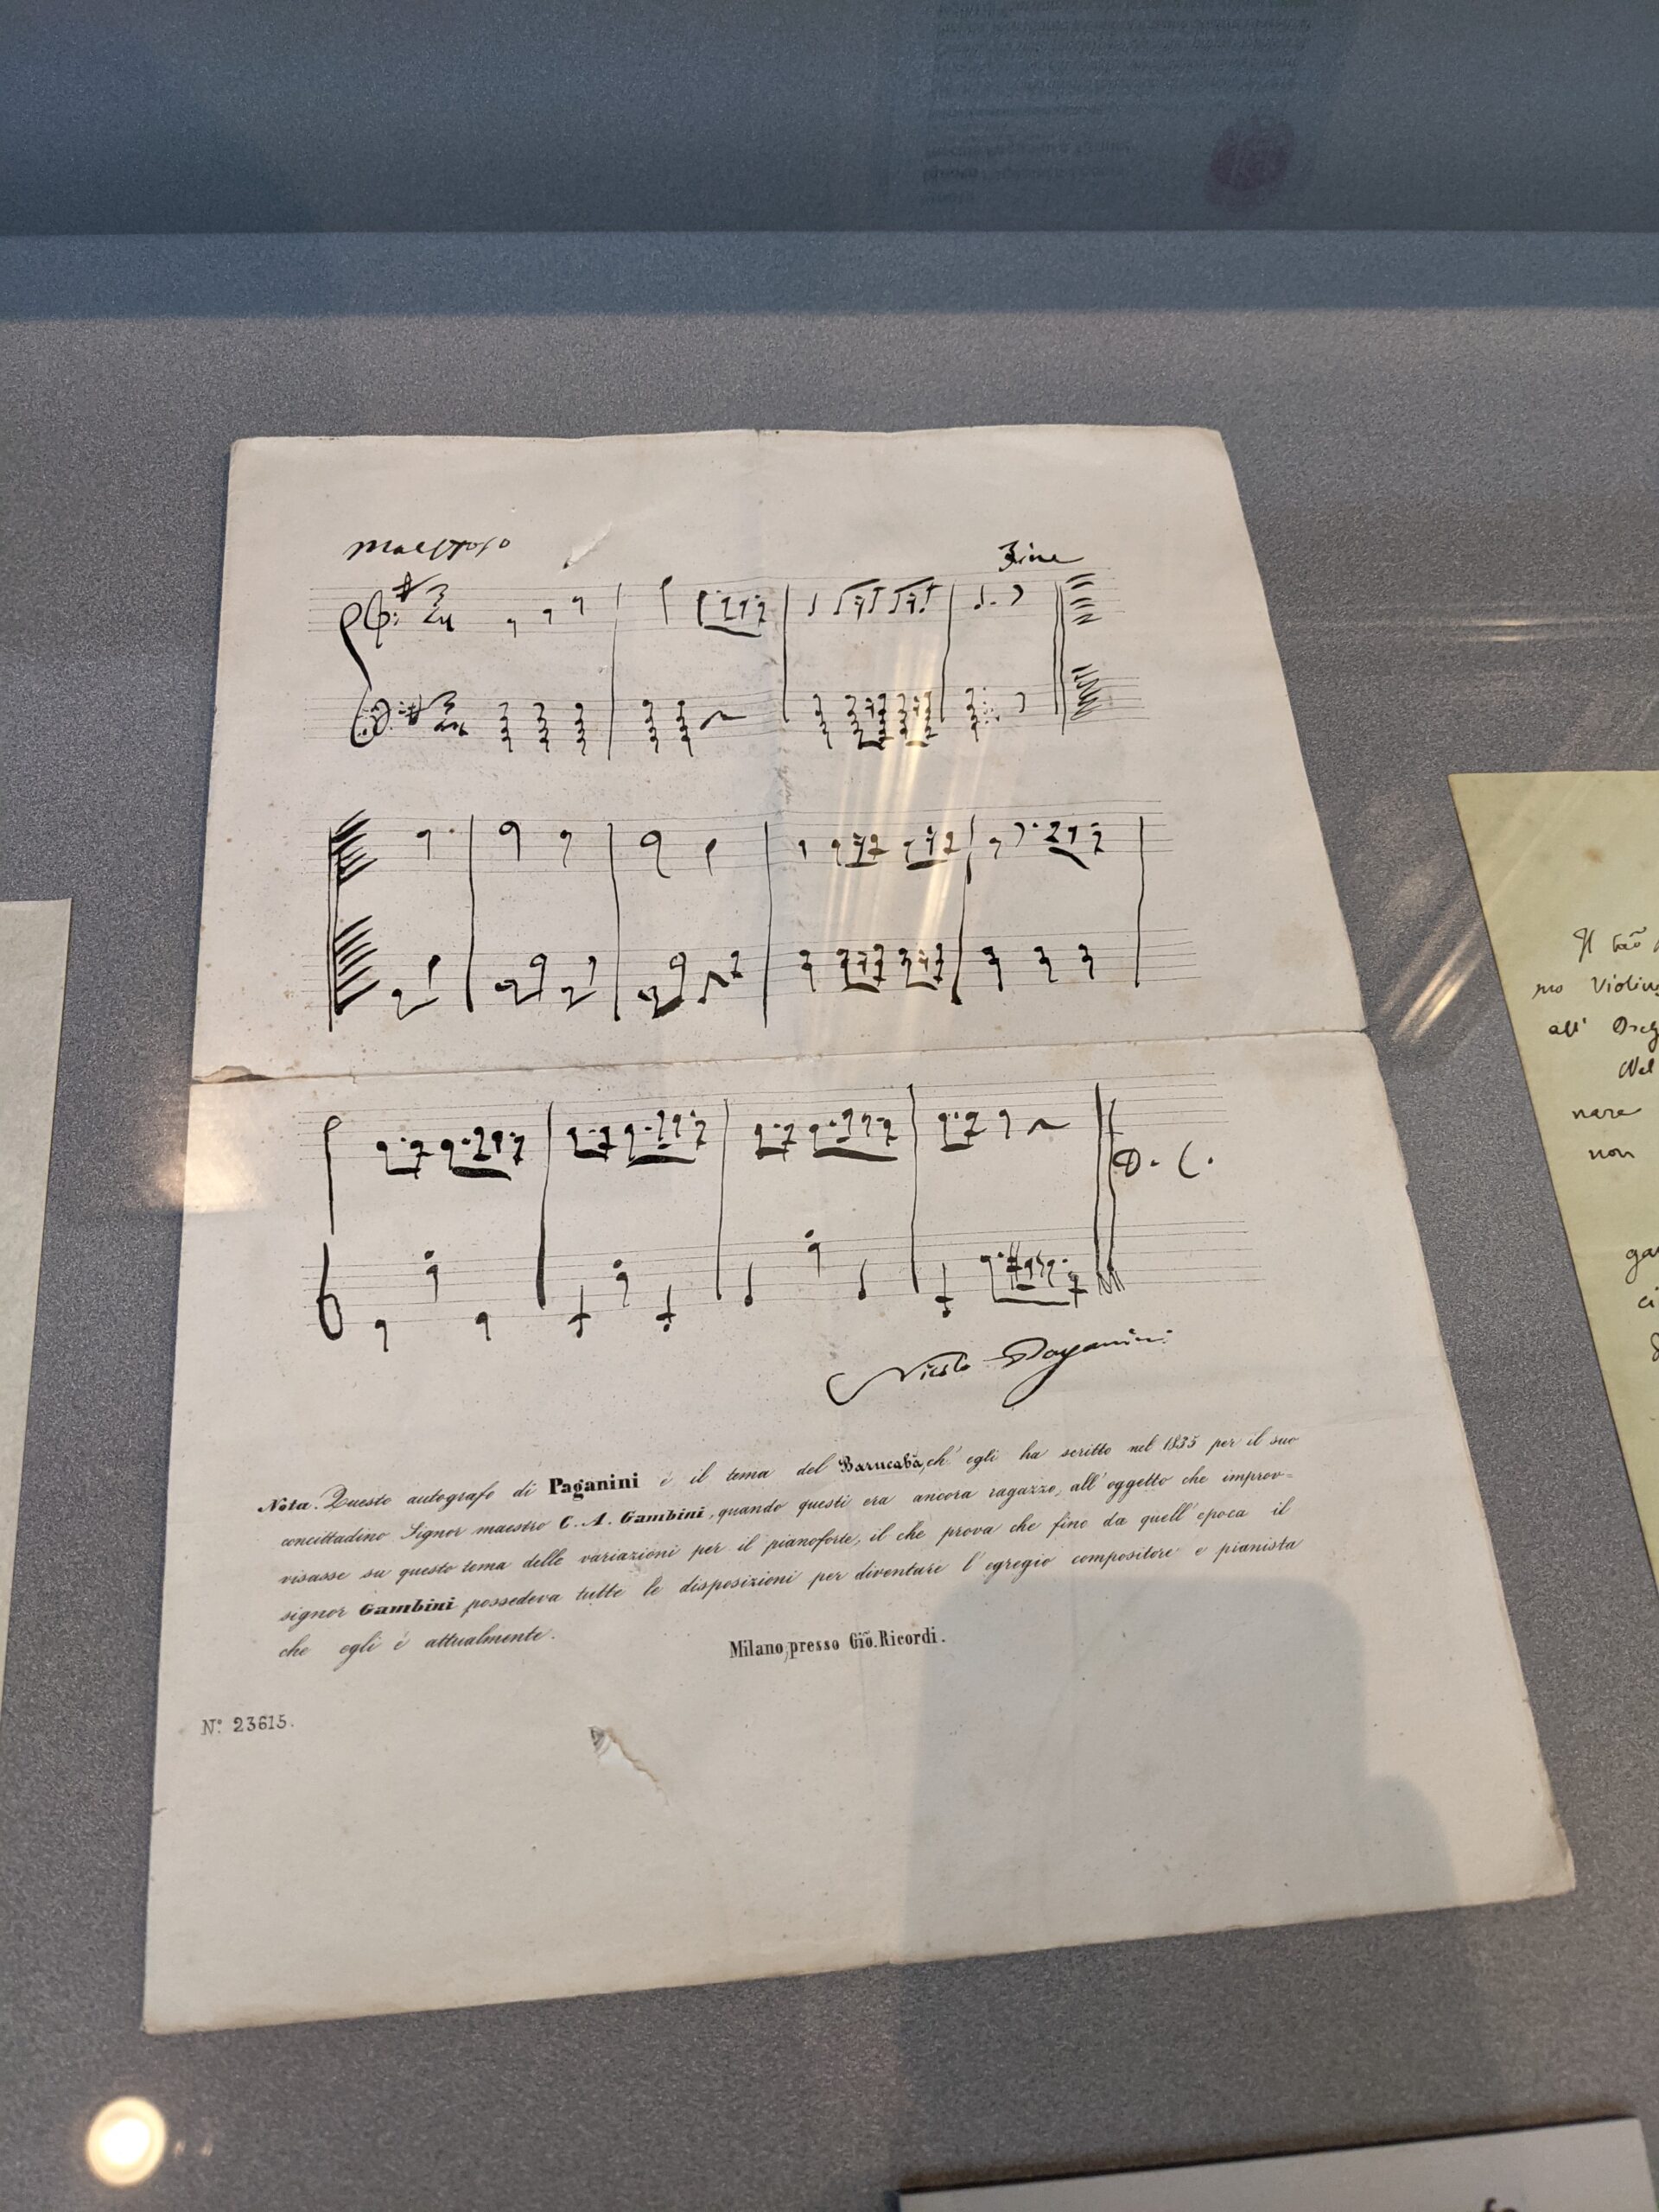 Maestoso
Fine
D. C.
Nicolo Paganini
Nota. Questo autografo di Paganini è il tema del Barucabà, ch' egli ha scritto nel 1835 per il suo
concittadino Signor maestro C. A. Gambini, quando questi era ancora ragazzo, all' oggetto che improv=
visasse su questo tema delle variazioni per il pianoforte, il che prova che fino da quell' epoca il
signor Gambini possedeva tutte le disposizioni per diventare l' egregio compositore e pianista
che egli è attualmente.
Milano, presso Gio. Ricordi.
N.º 23615.
Il
mo Violin
all'
Nel
nare
non